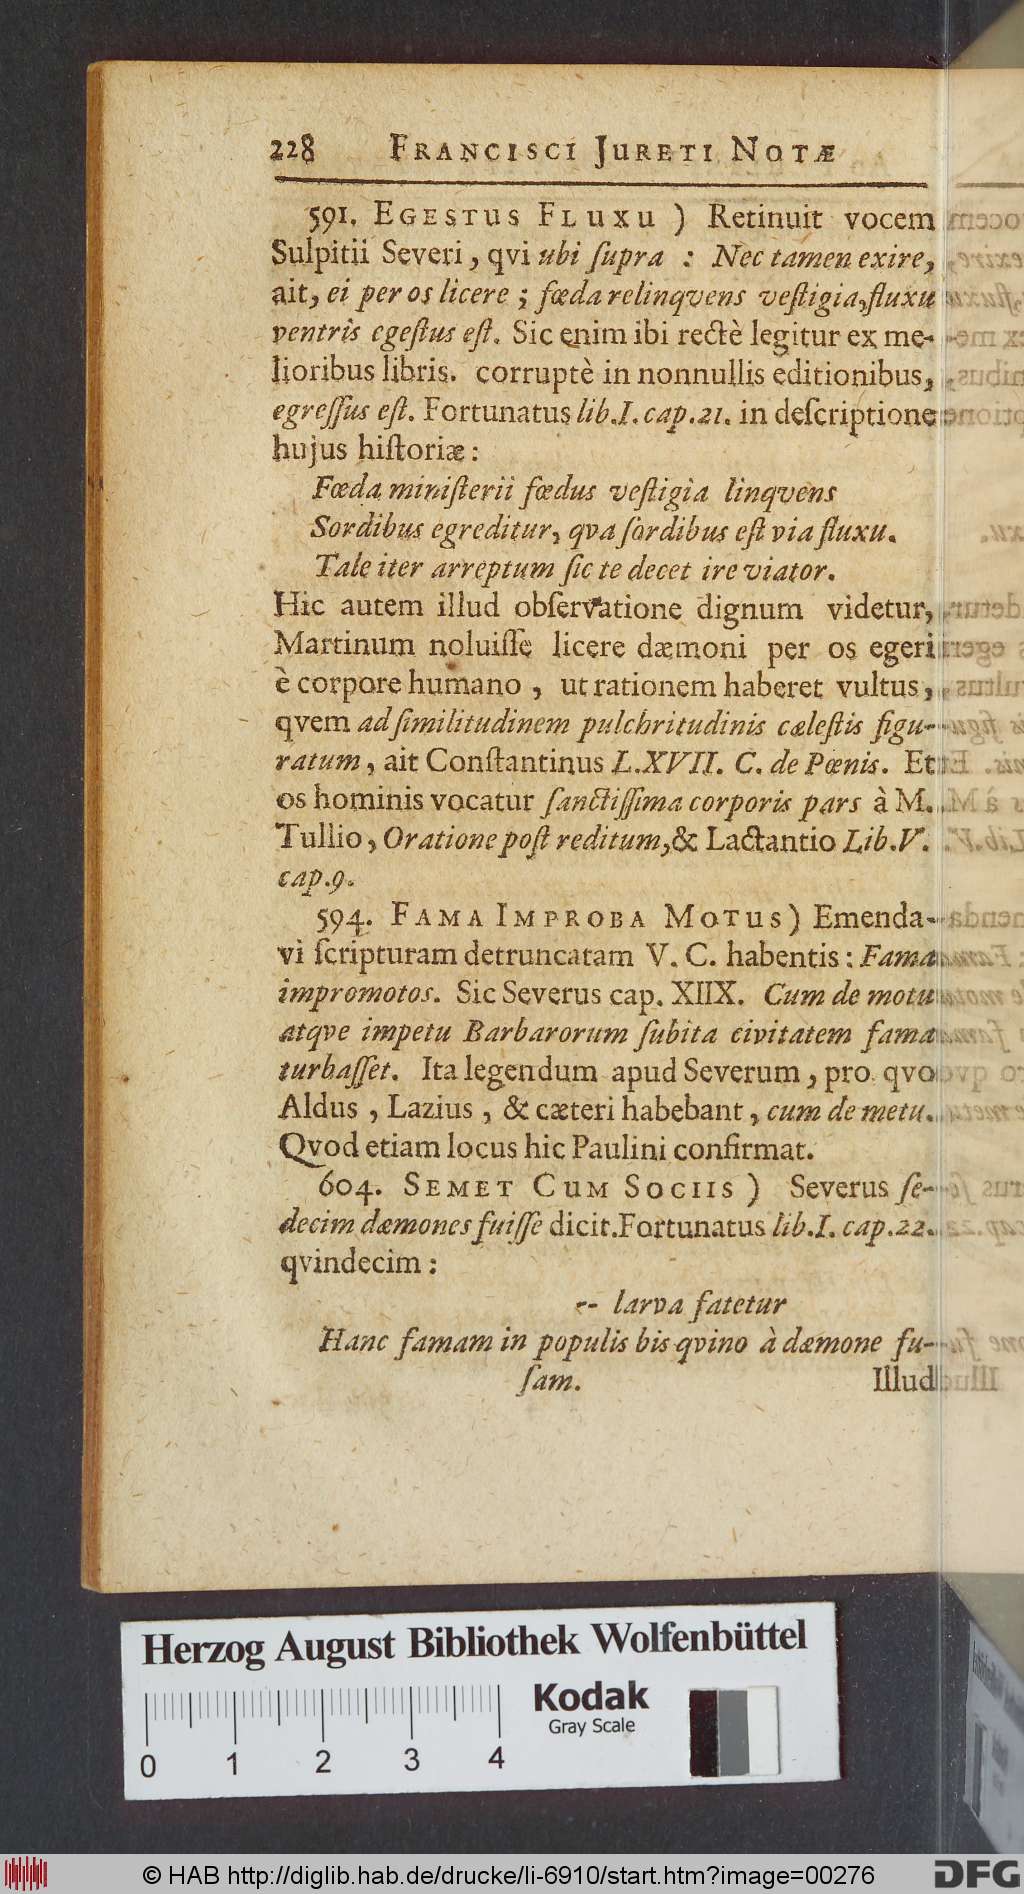 228 FRANCISCI JURETI NOTÆ
591. EGESTUS FLUXU ) Retinuit vocem
Sulpitii Severi, qvi ubi ſupra : Nec tamen exire,
ait, ei per os licere ; fœda relinqvens veſtigia, fluxu
ventris egeſtus eſt. Sic enim ibi rectè legitur ex me-
lioribus libris. corruptè in nonnullis editionibus,
egreſſus eſt. Fortunatus lib. I. cap. 21. in deſcriptione
hujus hiſtoriæ :
Fœda miniſterii fœdus veſtigia linqvens
Sordibus egreditur, qva ſordibus eſt via fluxu.
Tale iter arreptum ſic te decet ire viator.
Hic autem illud obſervatione dignum videtur,
Martinum noluiſſe licere dæmoni per os egeri
è corpore humano , ut rationem haberet vultus,
qvem ad ſimilitudinem pulchritudinis cæleſtis figu-
ratum, ait Conſtantinus L. XVII. C. de Pœnis. Et
os hominis vocatur ſanctiſſima corporis pars à M.
Tullio, Oratione poſt reditum, & Lactantio Lib. V.
cap. 9.
594. FAMA IMPROBA MOTUS) Emenda-
vi ſcripturam detruncatam V. C. habentis : Fama
impromotos. Sic Severus cap. XIIX. Cum de motu
atqve impetu Barbarorum ſubita civitatem fama
turbaſſet. Ita legendum apud Severum, pro qvo
Aldus , Lazius , & cæteri habebant, cum de metu.
Qvod etiam locus hic Paulini confirmat.
604. SEMET CUM SOCIIS ) Severus ſe-
decim dæmones fuiſſe dicit. Fortunatus lib. I. cap. 22.
qvindecim :
-- larva fatetur
Hanc famam in populis bis qvino à dæmone fu-
ſam. Illud
Herzog August Bibliothek Wolfenbüttel
Kodak
Gray Scale
0 1 2 3 4
© HAB http://diglib.hab.de/drucke/li-6910/start.htm?image=00276
DFG